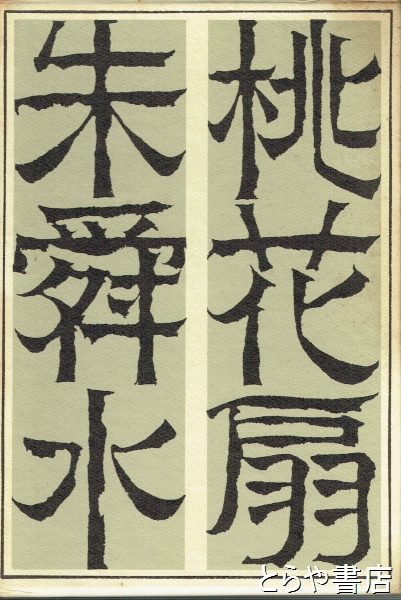 桃花扇
朱舜水
とらや書店